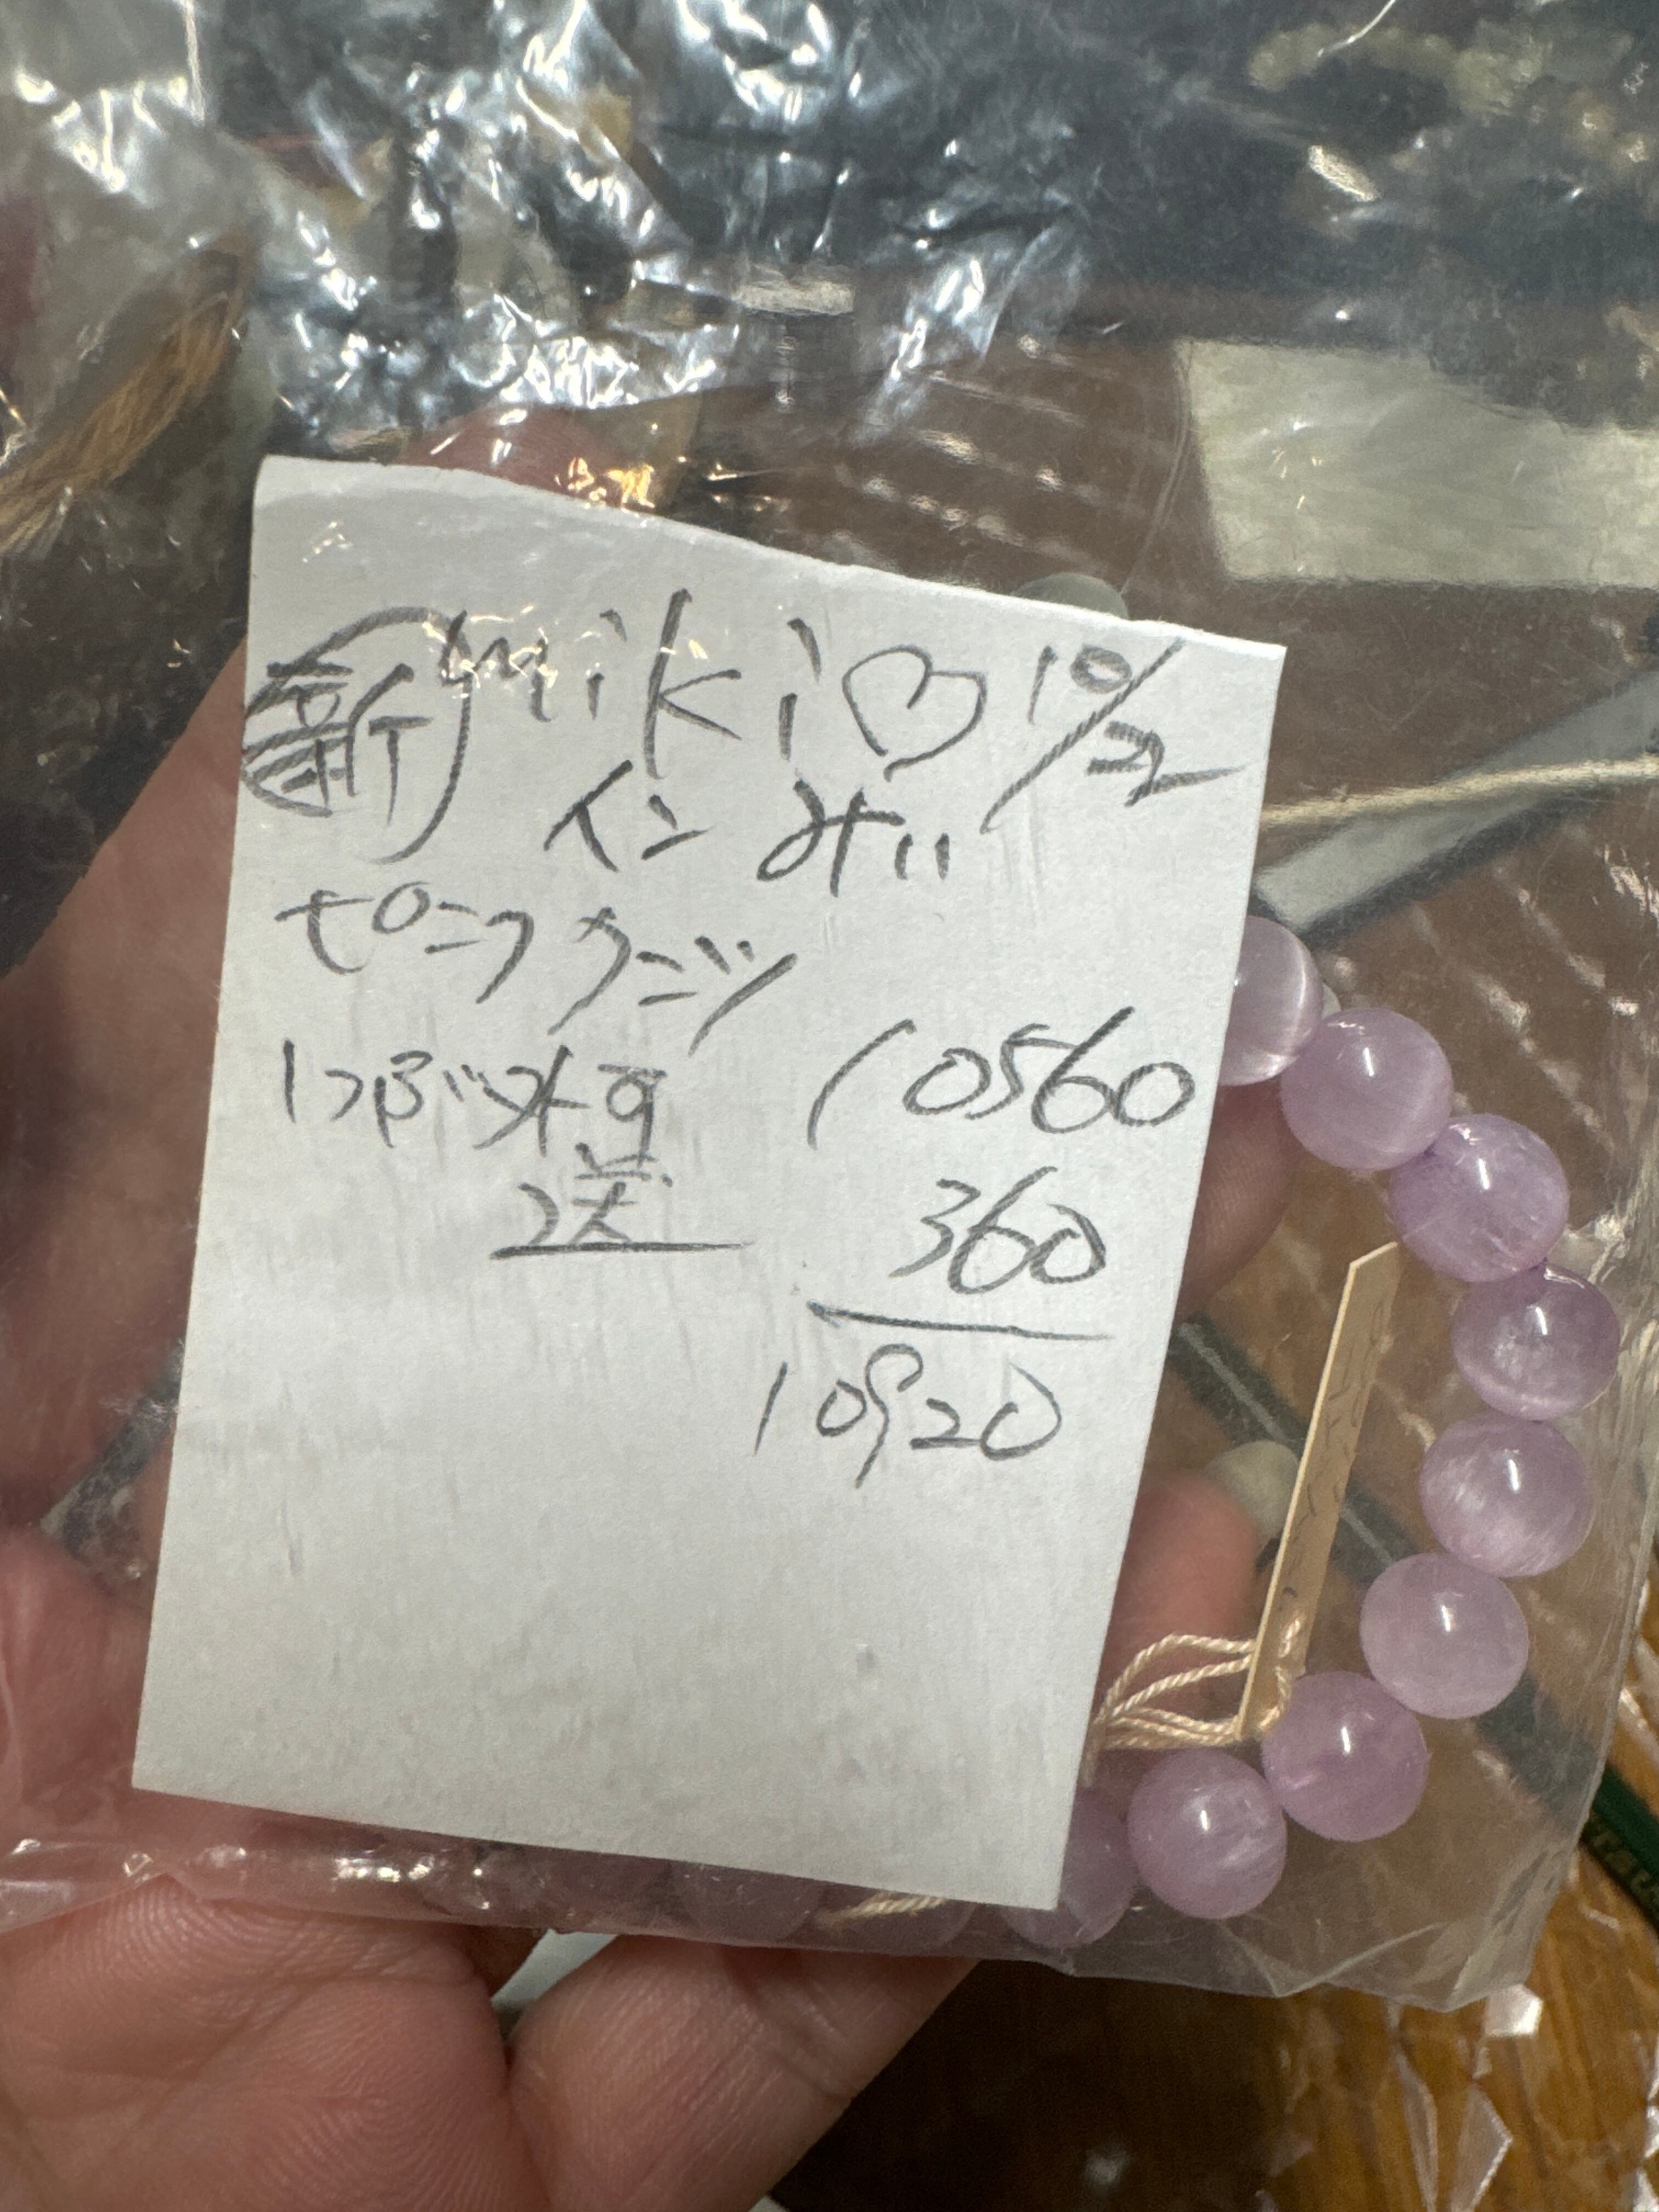 新 miki♡ 10/2
イン みぃ
ピンク クンツ
1つぶ 水晶
10560
360
10920